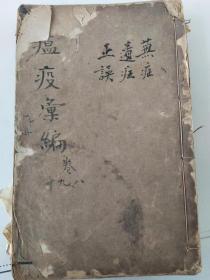 蕪症
遺症
正誤
瘟疫彙編
卷八
九
十